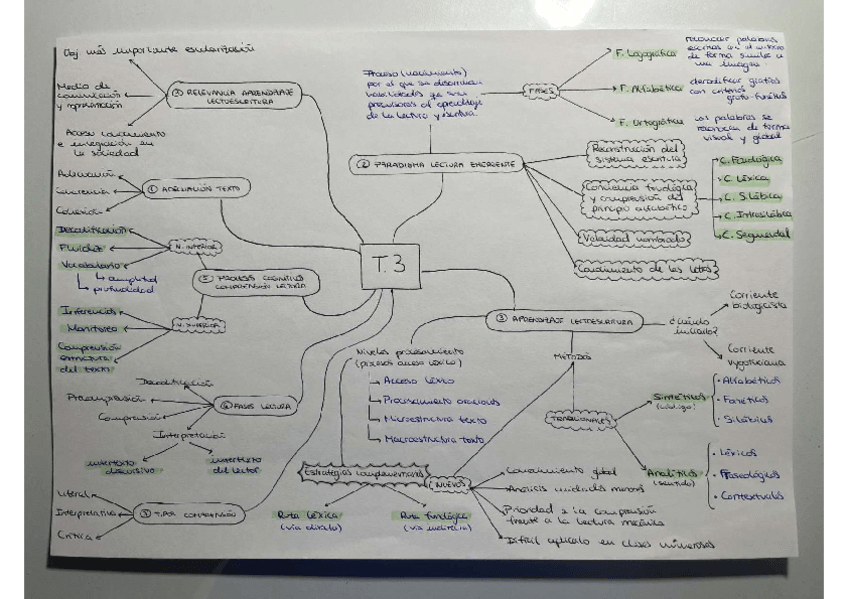 Obj más importante escolarización
① RELEVANCIA APRENDIZAJE
LECTOESCRITURA
Medio de
comunicación
y representación
Acceso conocimiento
e integración en
la sociedad
Proceso (nacimiento)
por el que se desarrollan
habilidades que son
precursoras al aprendizaje
de la lectura y escritura.
FASES
F. Logográfica
reconocer palabras
escritas en el entorno
de forma similar a
una imagen
F. Alfabética
decodificar grafías
con criterios
grafo-fonéticos
F. Ortográfica
las palabras se
reconocen de forma
visual y global
② PARADIGMA LECTURA EMERGENTE
Reconstrucción del
sistema escritura
Conciencia fonológica
y comprensión del
principio alfabético
C. Fonológica
C. Léxica
C. Silábica
C. Intrasilábica
C. Segmental
Velocidad nombrado
Conocimiento de las letras
ADECUACIÓN TEXTO
Adecuación
Coherencia
Cohesión
T.3
PROCESOS COGNITIVOS
COMPRENSIÓN LECTURA
N. INFERIOR
Decodificación
Fluidez
Vocabulario
amplitud
profundidad
N. SUPERIOR
Inferencias
Monitoreo
Comprensión
estructura
del texto
③ APRENDIZAJE LECTOESCRITURA
¿Cuándo
iniciarlo?
Corriente
biologicista
Corriente
vygotskiana
MÉTODOS
TRADICIONALES
Sintéticos
(código)
Alfabéticos
Fonéticos
Silábicos
Analíticos
(sentido)
Léxicos
Fraseológicos
Contextuales
NUEVOS
Conocimiento global
Análisis unidades menores
Prioridad a la comprensión
frente a la lectura mecánica
Difícil aplicarlo en clases numerosas
Niveles procesamiento
(procesos acceso léxico)
Acceso léxico
Procesamiento oraciones
Microestructura texto
Macroestructura texto
Estrategias complementarias
Ruta léxica
(vía directa)
Ruta fonológica
(vía indirecta)
④ FASES LECTURA
Decodificación
Precomprensión
Comprensión
Interpretación
intertexto
discursivo
intertexto
del lector
TIPOS COMPRENSIÓN
Literal
Interpretativa
Crítica